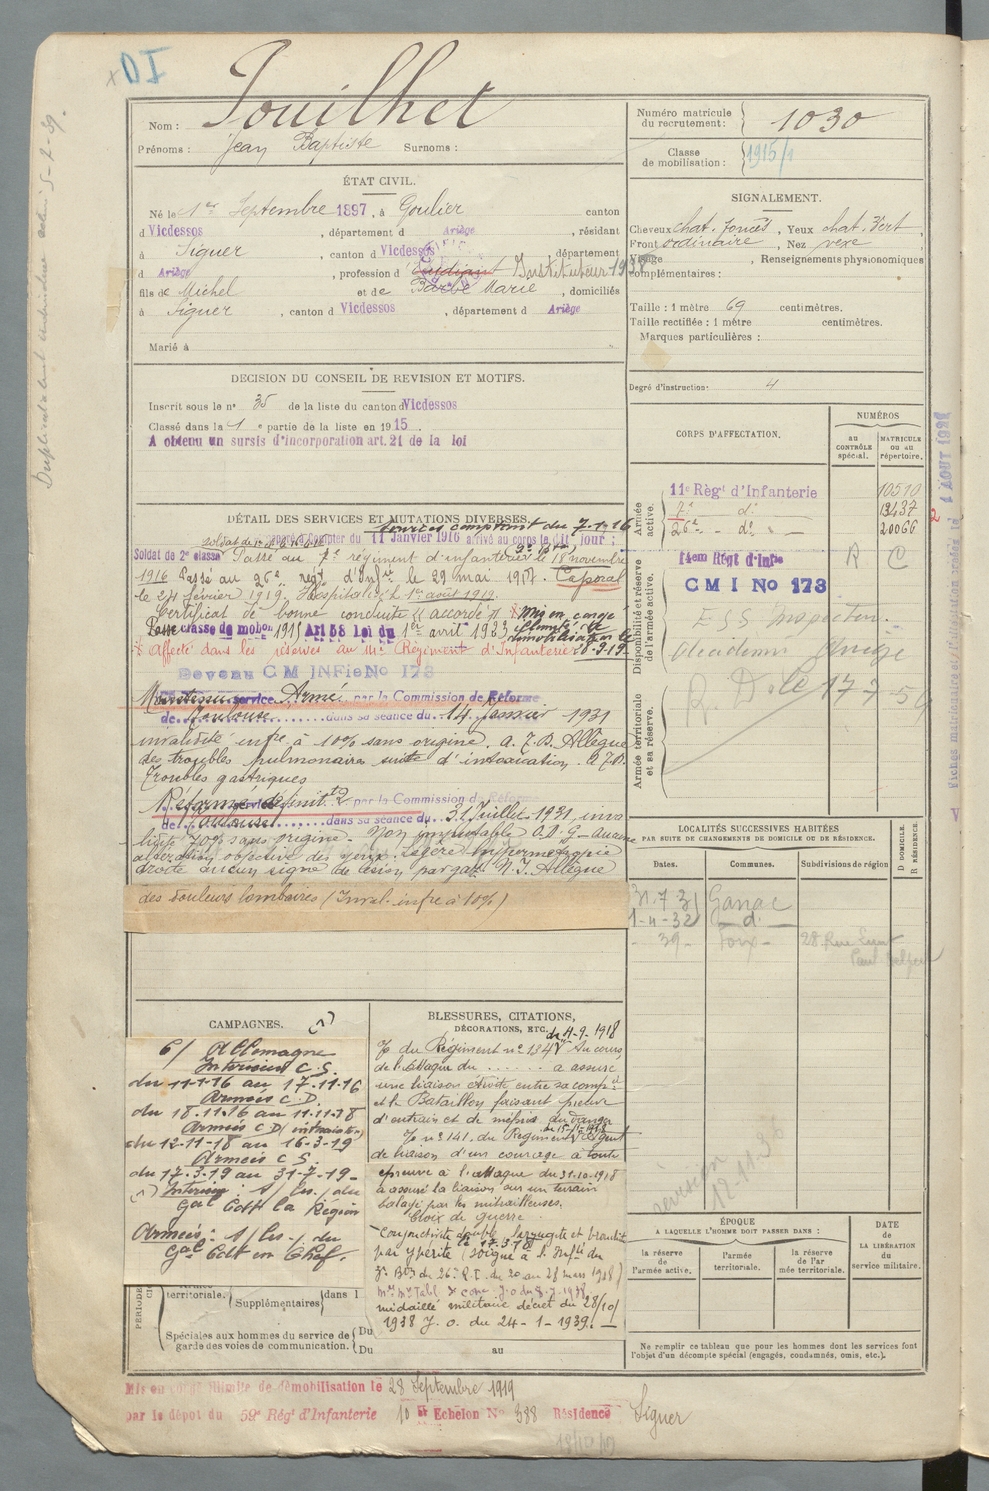 DI
Nom : Jouilhet
Prénoms : Jean Baptiste Surnoms :
Numéro matricule du recrutement : 1030
Classe de mobilisation : 1915/1
ÉTAT CIVIL.
Né le 1er Septembre 1897, à Goulier canton
d Vicdessos, département d Ariège, résidant
à Siguer, canton d Vicdessos département
d Ariège, profession d Etudiant Instituteur
fils de Michel et de Barbe Marie, domiciliés
à Siguer, canton d Vicdessos, département d Ariège
Marié à
SIGNALEMENT.
Cheveux chat. foncés, Yeux chat. vert
Front ordinaire, Nez vexe
Visage, Renseignements physionomiques
complémentaires :
Taille : 1 mètre 69 centimètres.
Taille rectifiée : 1 mètre centimètres.
Marques particulières :
Degré d'instruction : 4
DECISION DU CONSEIL DE REVISION ET MOTIFS.
Inscrit sous le n° 35 de la liste du canton d Vicdessos
Classé dans la 1e partie de la liste en 1915.
A obtenu un sursis d'incorporation art. 21 de la loi
CORPS D'AFFECTATION.
NUMÉROS
au CONTRÔLE spécial.
MATRICULE ou au répertoire.
Armée active.
11e Régt d'Infanterie 10510
7e d° 13437
26e d° 20066
Disponibilité et réserve de l'armée active.
14em Régt d'Infie R C
C M I No 173
Académie Ariège
Armée territoriale et sa réserve.
DÉTAIL DES SERVICES ET MUTATIONS DIVERSES.
Services comptant du 7.1.16
à Compter du 11 Janvier 1916 arrivé au corps le dit jour ;
Soldat de 2e classe Passé au 7e régiment d'infanterie le 18 novembre
1916 Passé au 26e régt d'Infie le 29 mai 1917. Caporal
le 24 février 1919. Hospitalisé le 1er août 1919.
Certificat de bonne conduite "accordé" Mis en congé
illimité de
Passé classe de mobon 1915 Art 58 Loi du 1er avril 1923 démobilisation le
Affecté dans les réserves au 14e Régiment d'Infanterie 28-9-19
Devenu C M INFie No 173
Maintenu service Armé par la Commission de Réforme
de Toulouse dans sa séance du 14 Janvier 1931
invalidité infre à 10% sans origine. A.J.D. Allègue
des troubles pulmonaires suite d'intoxication. A.J.D.
Troubles gastriques
Réformé définitt 2 par la Commission de Réforme
de Toulouse dans sa séance du 31 Juillet 1931 inva
lidité sans origine. Non imputable
altération objective des yeux. Légère hypermétropie
droite aucun signe de lésion par gaz. Allègue
des douleurs lombaires (Inval. infre à 10%)
LOCALITÉS SUCCESSIVES HABITÉES
PAR SUITE DE CHANGEMENTS DE DOMICILE OU DE RÉSIDENCE.
Dates. Communes. Subdivisions de région
D DOMICILE. R RÉSIDENCE.
31.7.31 Ganac
1-4-32 d°
39 Foix 28 Rue
CAMPAGNES.
c/ Allemagne
Intérieur C.S.
du 11-1-16 au 17.11.16
Armées C.D.
du 18.11.16 au 11.11.18
Armées C D
du 12-11-18 au 16-3-19
Armées C S
du 17-3-19 au 31-7-19
Intérieur : 1/ Ins. du
Gal Cdt la Région
Armées : 1/ Ins. du
Gal Cdt en Chef.
BLESSURES, CITATIONS,
DÉCORATIONS, ETC.
du 4-9-1918
du Régiment n° 134 Au cours
de l'attaque du ...... a assuré
une liaison étroite entre sa compie
et le Bataillon faisant preuve
d'entrain et de mépris du danger
n° 141, du Régiment Agent
de liaison d'un courage à toute
épreuve à l'attaque du 31.10.1918
a assuré la liaison sur un terrain
balayé par les mitrailleuses.
Croix de guerre
Conjonctivite double laryngite et bronchite
le 17.3.18
par ypérite (soigné à l'Infie du
3e Bon du 26e R.I. du 20 au 28 mars 1918)
médaillé militaire décret du 28/10/
1938 J. o. du 24-1-1939.
révision 12.11.36
territoriale.
Supplémentaires dans l
Spéciales aux hommes du service de
garde des voies de communication.
Du
Du au
ÉPOQUE
A LAQUELLE L'HOMME DOIT PASSER DANS :
la réserve de l'armée active.
l'armée territoriale.
la réserve de l'armée territoriale.
DATE DE LA LIBÉRATION du service militaire.
Ne remplir ce tableau que pour les hommes dont les services font
l'objet d'un décompte spécial (engagés, condamnés, omis, etc.).
Mis en congé illimité de démobilisation le 28 Septembre 1919
par le dépôt du 59e Régt d'Infanterie 10 et Echelon No 388 Résidence Siguer